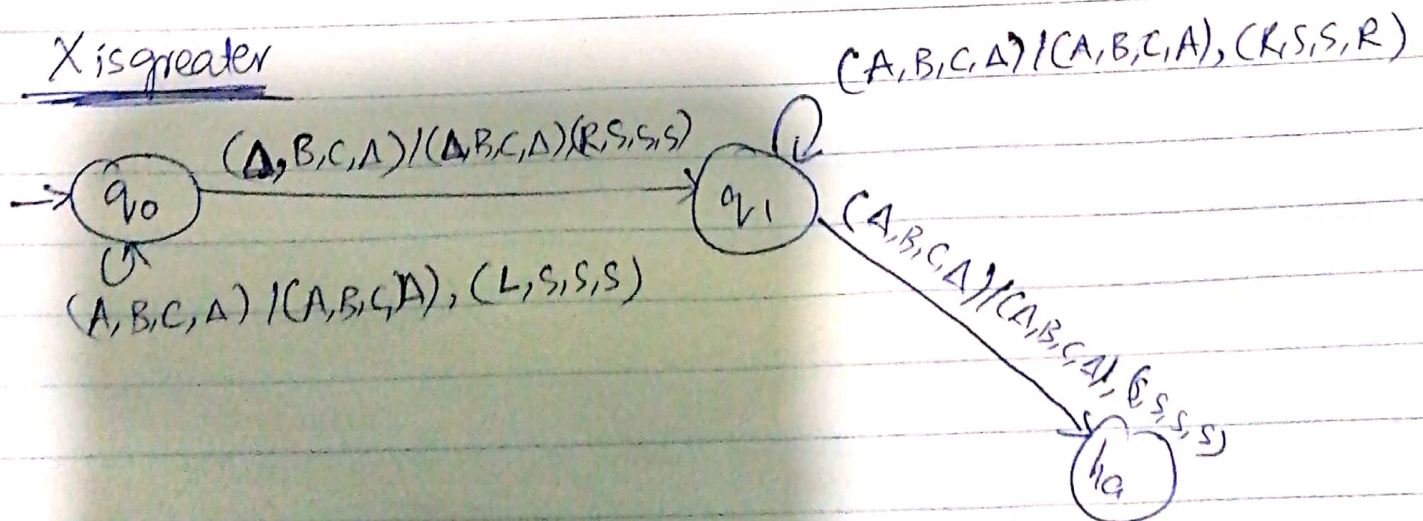 X is greater
(A,B,C,Δ)/(A,B,C,A),(R,S,S,R)
(Δ,B,C,Δ)/(Δ,B,C,Δ)(R,S,S,S)
q0
q1
(A,B,C,Δ)/(A,B,C,Δ),(L,S,S,S)
(Δ,B,C,Δ)/(Δ,B,C,Δ),(S,S,S,S)
ha